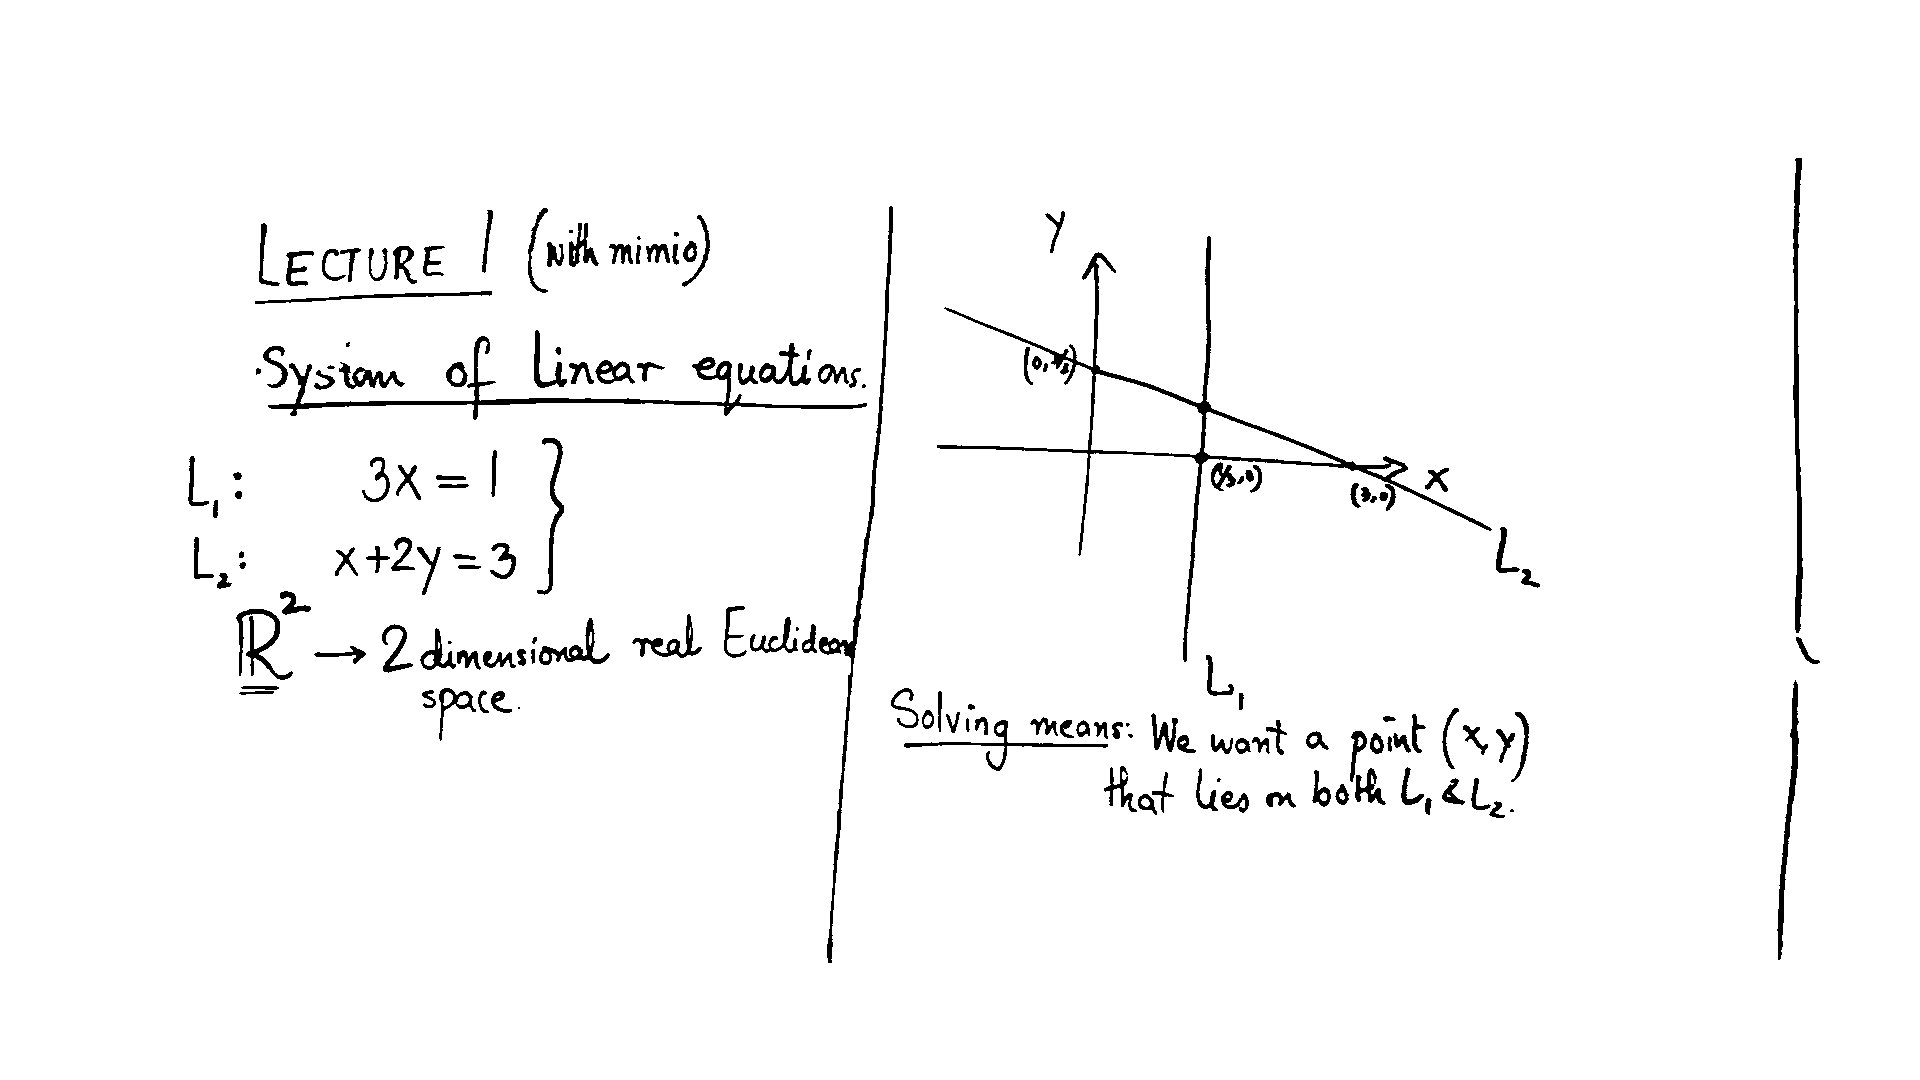 LECTURE 1 (with mimio)
System of Linear equations.
L₁: 3x = 1
L₂: x+2y = 3
ℝ² → 2 dimensional real Euclidean
space.
y
(0, 3/2)
(1/3, 0)
x
(3, 0)
L₂
L₁
Solving means: We want a point (x, y)
that lies on both L₁ & L₂.